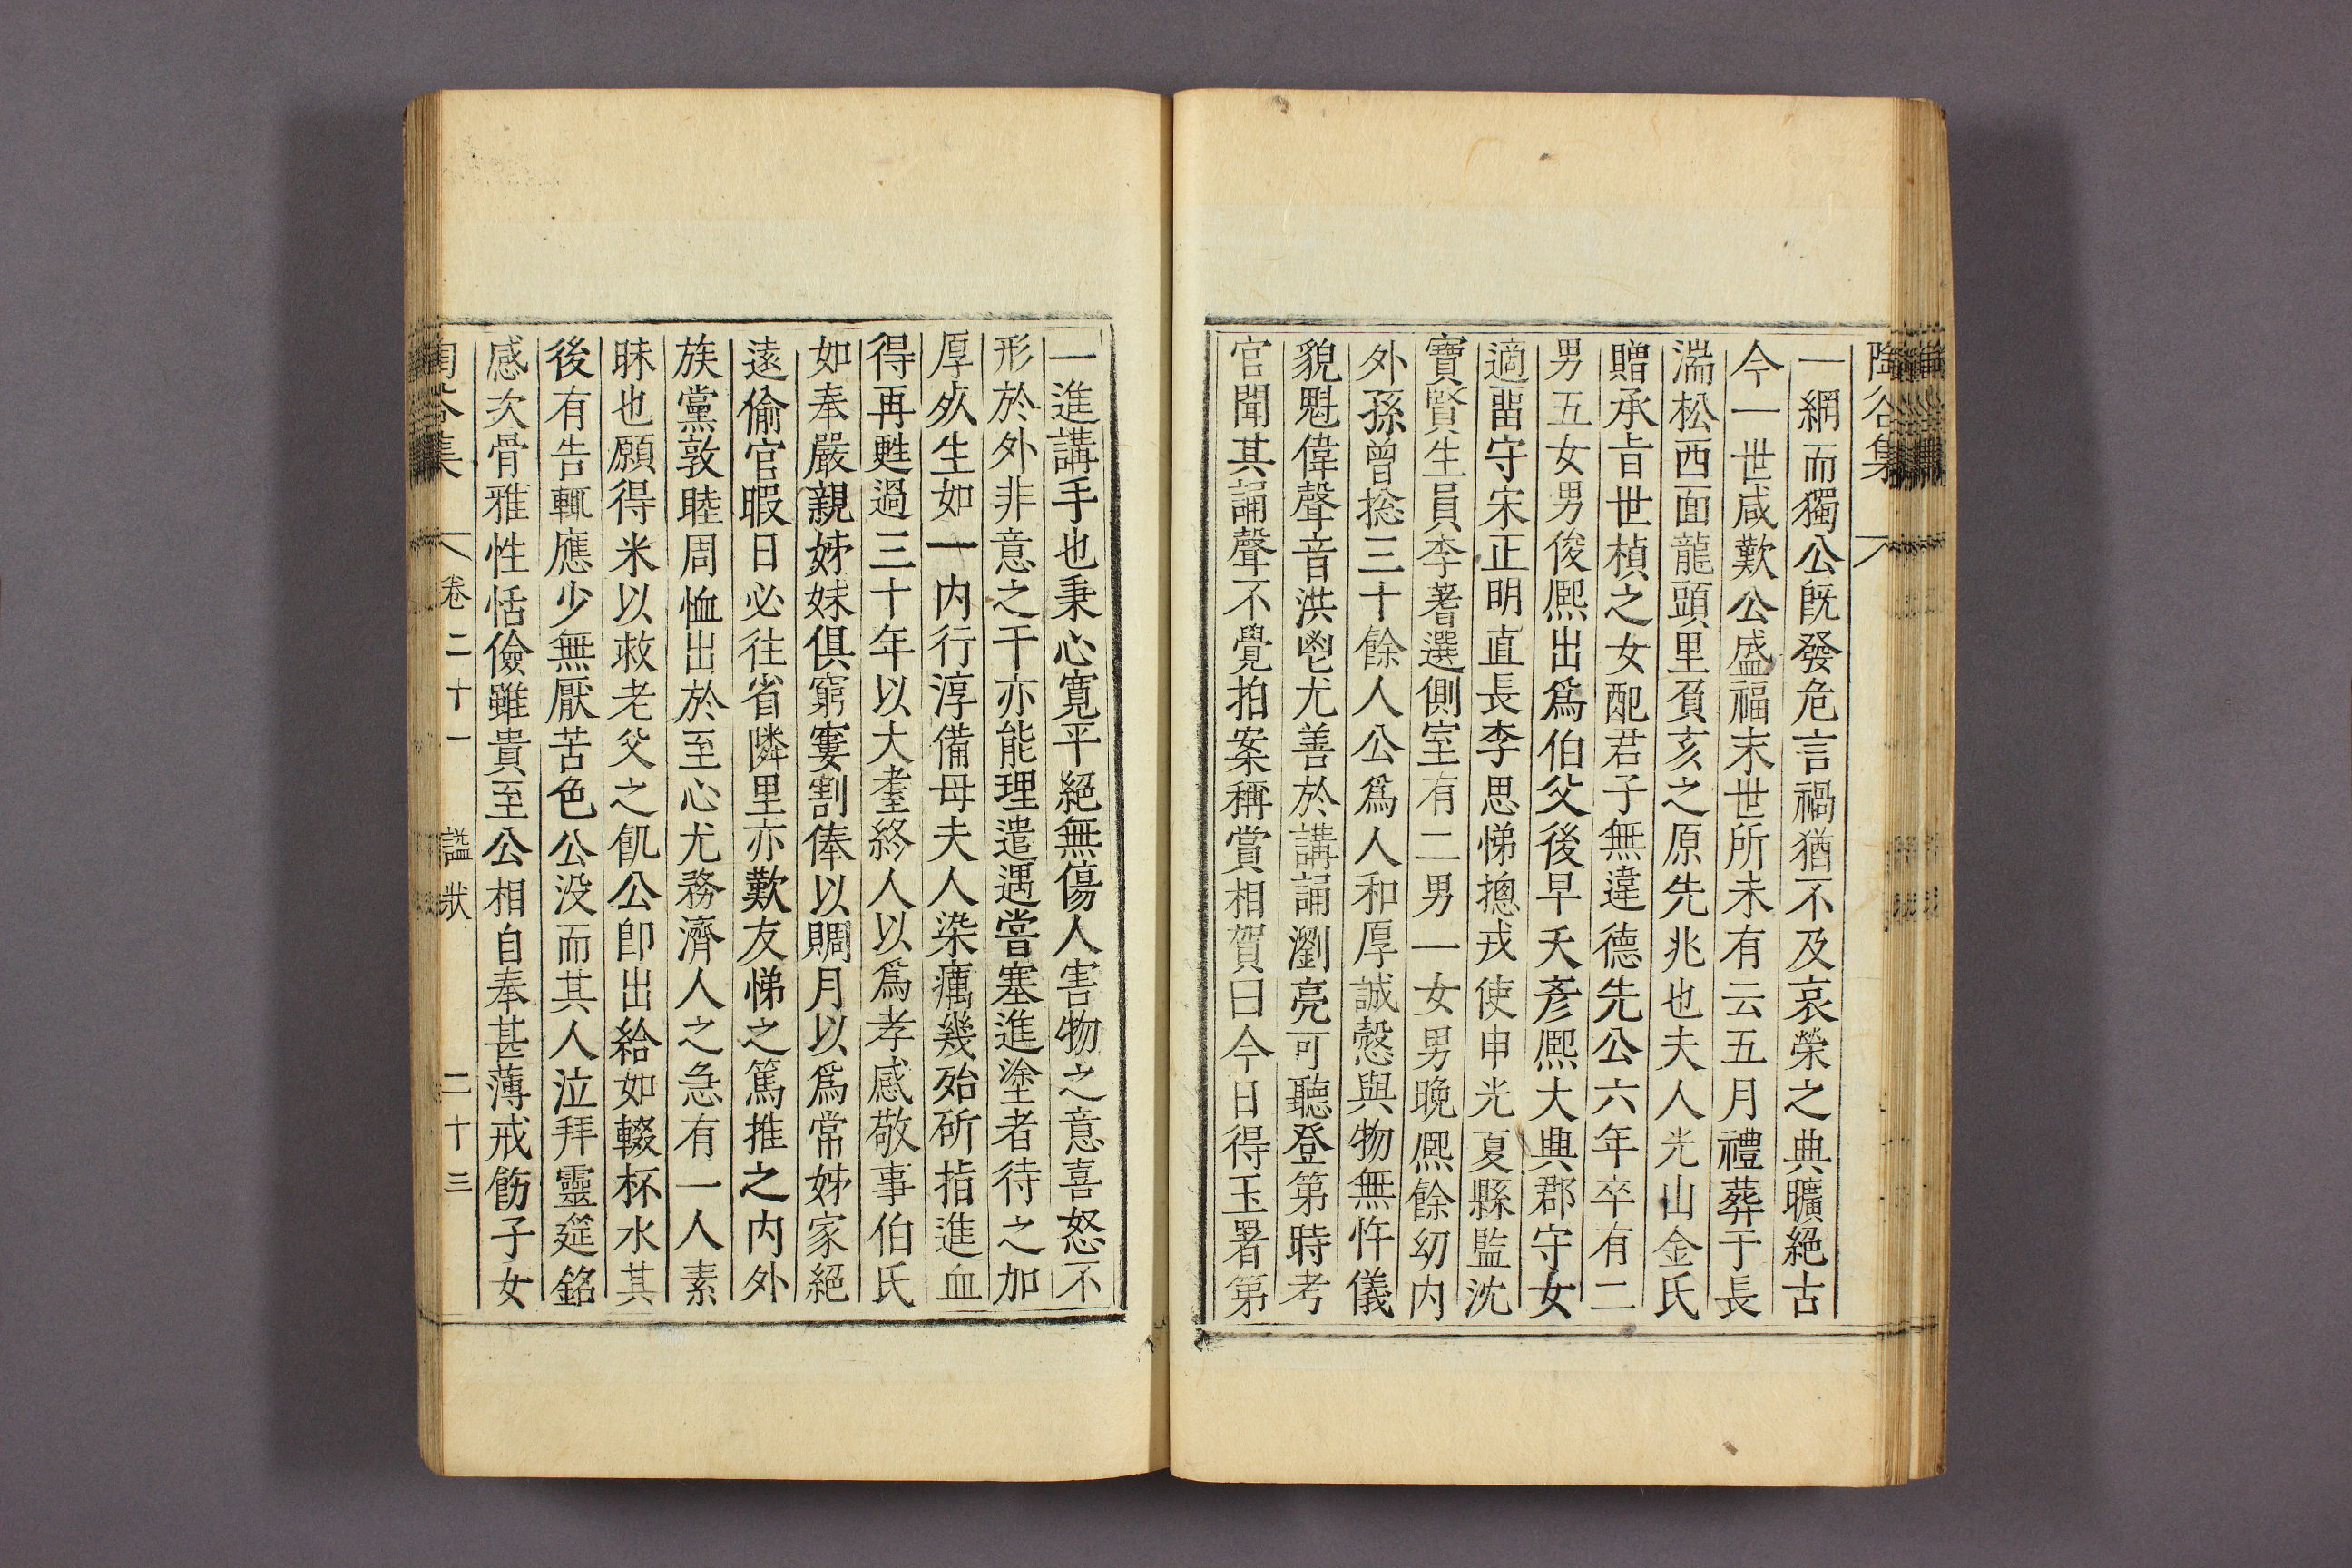 陶谷集
一網而獨公旣發危言禍猶不及哀榮之典曠絕古
今一世咸歎公盛福末世所未有云五月禮葬于長
湍松西面龍頭里負亥之原先兆也夫人光山金氏
贈承旨世楨之女配君子無違德先公六年卒有二
男五女男俊熈出爲伯父後早夭彥熈大興郡守女
適畱守宋正明直長李思悌摠戎使申光夏縣監沈
寶賢生員李蓍選側室有二男一女男晚熈餘幼内
外孫曾捴三十餘人公爲人和厚誠慤與物無忤儀
貌魁偉聲音洪鬯尤善於講誦瀏亮可聽登第時考
官聞其誦聲不覺拍案稱賞相賀曰今日得玉署第
一進講手也秉心寬平絕無傷人害物之意喜怒不
形於外非意之干亦能理遣遇嘗塞進塗者待之加
厚㱛生如一内行淳備母夫人染癘幾殆斫指進血
得再甦過三十年以大耋終人以爲孝感敬事伯氏
如奉嚴親姊妹俱窮寠割俸以賙月以爲常姊家絕
遠偷官暇日必往省隣里亦歎友悌之篤推之内外
族黨敦睦周恤出於至心尤務濟人之急有一人素
昧也願得米以救老父之飢公卽出給如輟杯水其
後有告輒應少無厭苦色公没而其人泣拜靈筵銘
感次骨雅性恬儉雖貴至公相自奉甚薄戒飭子女
陶谷集 卷二十一 諡狀 二十三